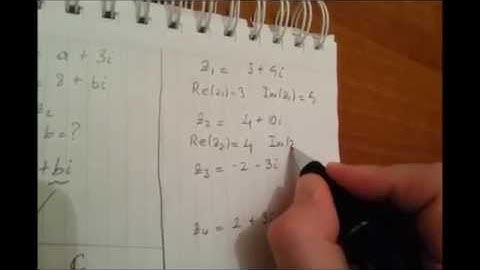 a + 3i
8 + bi
z2
b = ?
+ bi
C
z1 = 3 + 5i
Re(z1) = 3 Im(z1) = 5
z2 = 4 + 10i
Re(z2) = 4 Im(z
z3 = -2 - 3i
z4 = 2 +